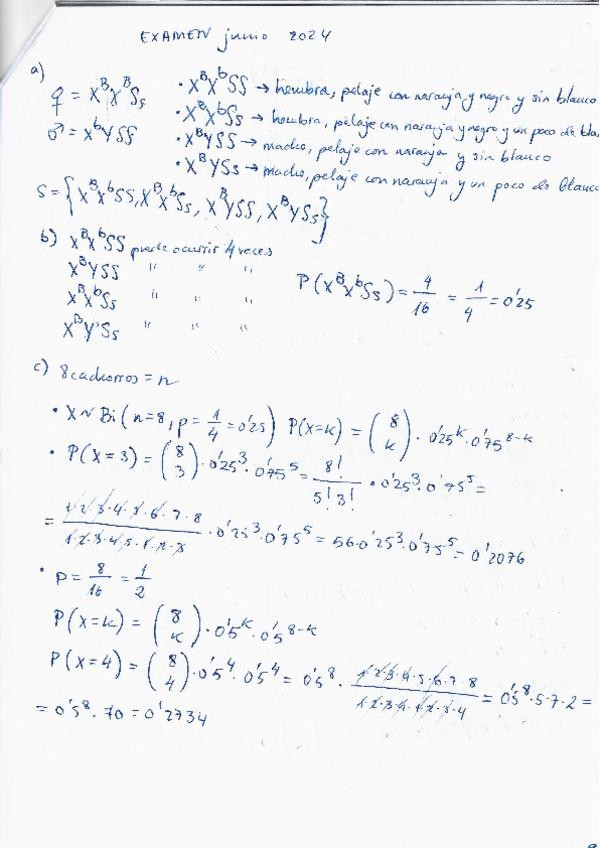 EXAMEN junio 2024
a)
♀ = X^B X^B Ss · X^B X^b SS → hembra, pelaje con naranja y negro y sin blanco
♂ = X^b Y SS · X^B X^b Ss → hembra, pelaje con naranja y negro y un poco de bla
· X^B Y SS → macho, pelaje con naranja y sin blanco
· X^B Y Ss → macho, pelaje con naranja y un poco de blanco
S = { X^B X^b SS, X^B X^b Ss, X^B Y SS, X^B Y Ss }
b) X^B X^b SS puede ocurrir 4 veces
X^B Y SS " " "
X^B X^b Ss " " " P(X^B X^b Ss) = 4/16 = 1/4 = 0'25
X^B Y Ss " " "
c) 8 cachorros = n
· X ~ Bi (n=8, p = 1/4 = 0'25) P(X=k) = (8 k) · 0'25^k · 0'75^8-k
· P(X=3) = (8 3) · 0'25^3 · 0'75^5 = 8!/5!3! · 0'25^3 · 0'75^5 =
= 1·2·3·4·5·6·7·8/1·2·3·4·5·1·2·3 · 0'25^3 · 0'75^5 = 56 · 0'25^3 · 0'75^5 = 0'2076
· P = 8/16 = 1/2
P(X=k) = (8 k) · 0'5^k · 0'5^8-k
P(X=4) = (8 4) · 0'5^4 · 0'5^4 = 0'5^8 · 1·2·3·4·5·6·7·8/1·2·3·4·1·2·3·4 = 0'5^8 · 5·7·2 =
= 0'5^8 · 70 = 0'2734